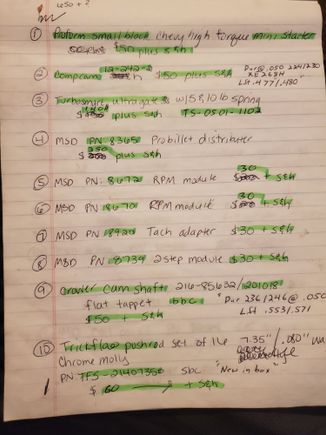 650 + ?
① Proform small block chevy high torque mini starter
$50 plus s&h
② Compcam 12-242-2 $50 plus s&h Dur@.050 224/230
XE268H
Lft .477/.480"
③ Turbosmart ultragate w/ 5,8,10 lb spring
$140 plus s&h TS-0501-1102
④ MSD PN 8365 Probillet distributer
$250 plus s&h
⑤ MSD PN: 8672 RPM module $30 + S&H
⑥ MSD PN 8670 RPM module $30 + S&H
⑦ MSD PN 8920 Tach adapter $30 + S&H
⑧ MSD PN 8739 2 step module $30 + S&H
⑨ Crower Cam shaft 216-85632/201018
flat tappet bbc "Dur 236/246 @ .050
$50 + S&h Lft .553/.571
⑩ Trickflow pushrod set of 16 7.35"/.080" wa
Chrome molly
PN TFS-21407350 sbc "New in box"
$60 → + S&h